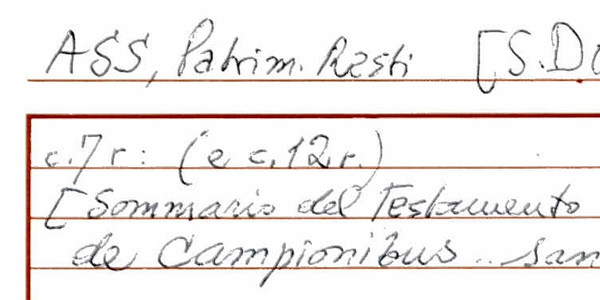 ASS, Patrim. Resti [S.D
c.7 r: (e c.12 r.)
[Sommario del Testamento
de Campionibus .. san